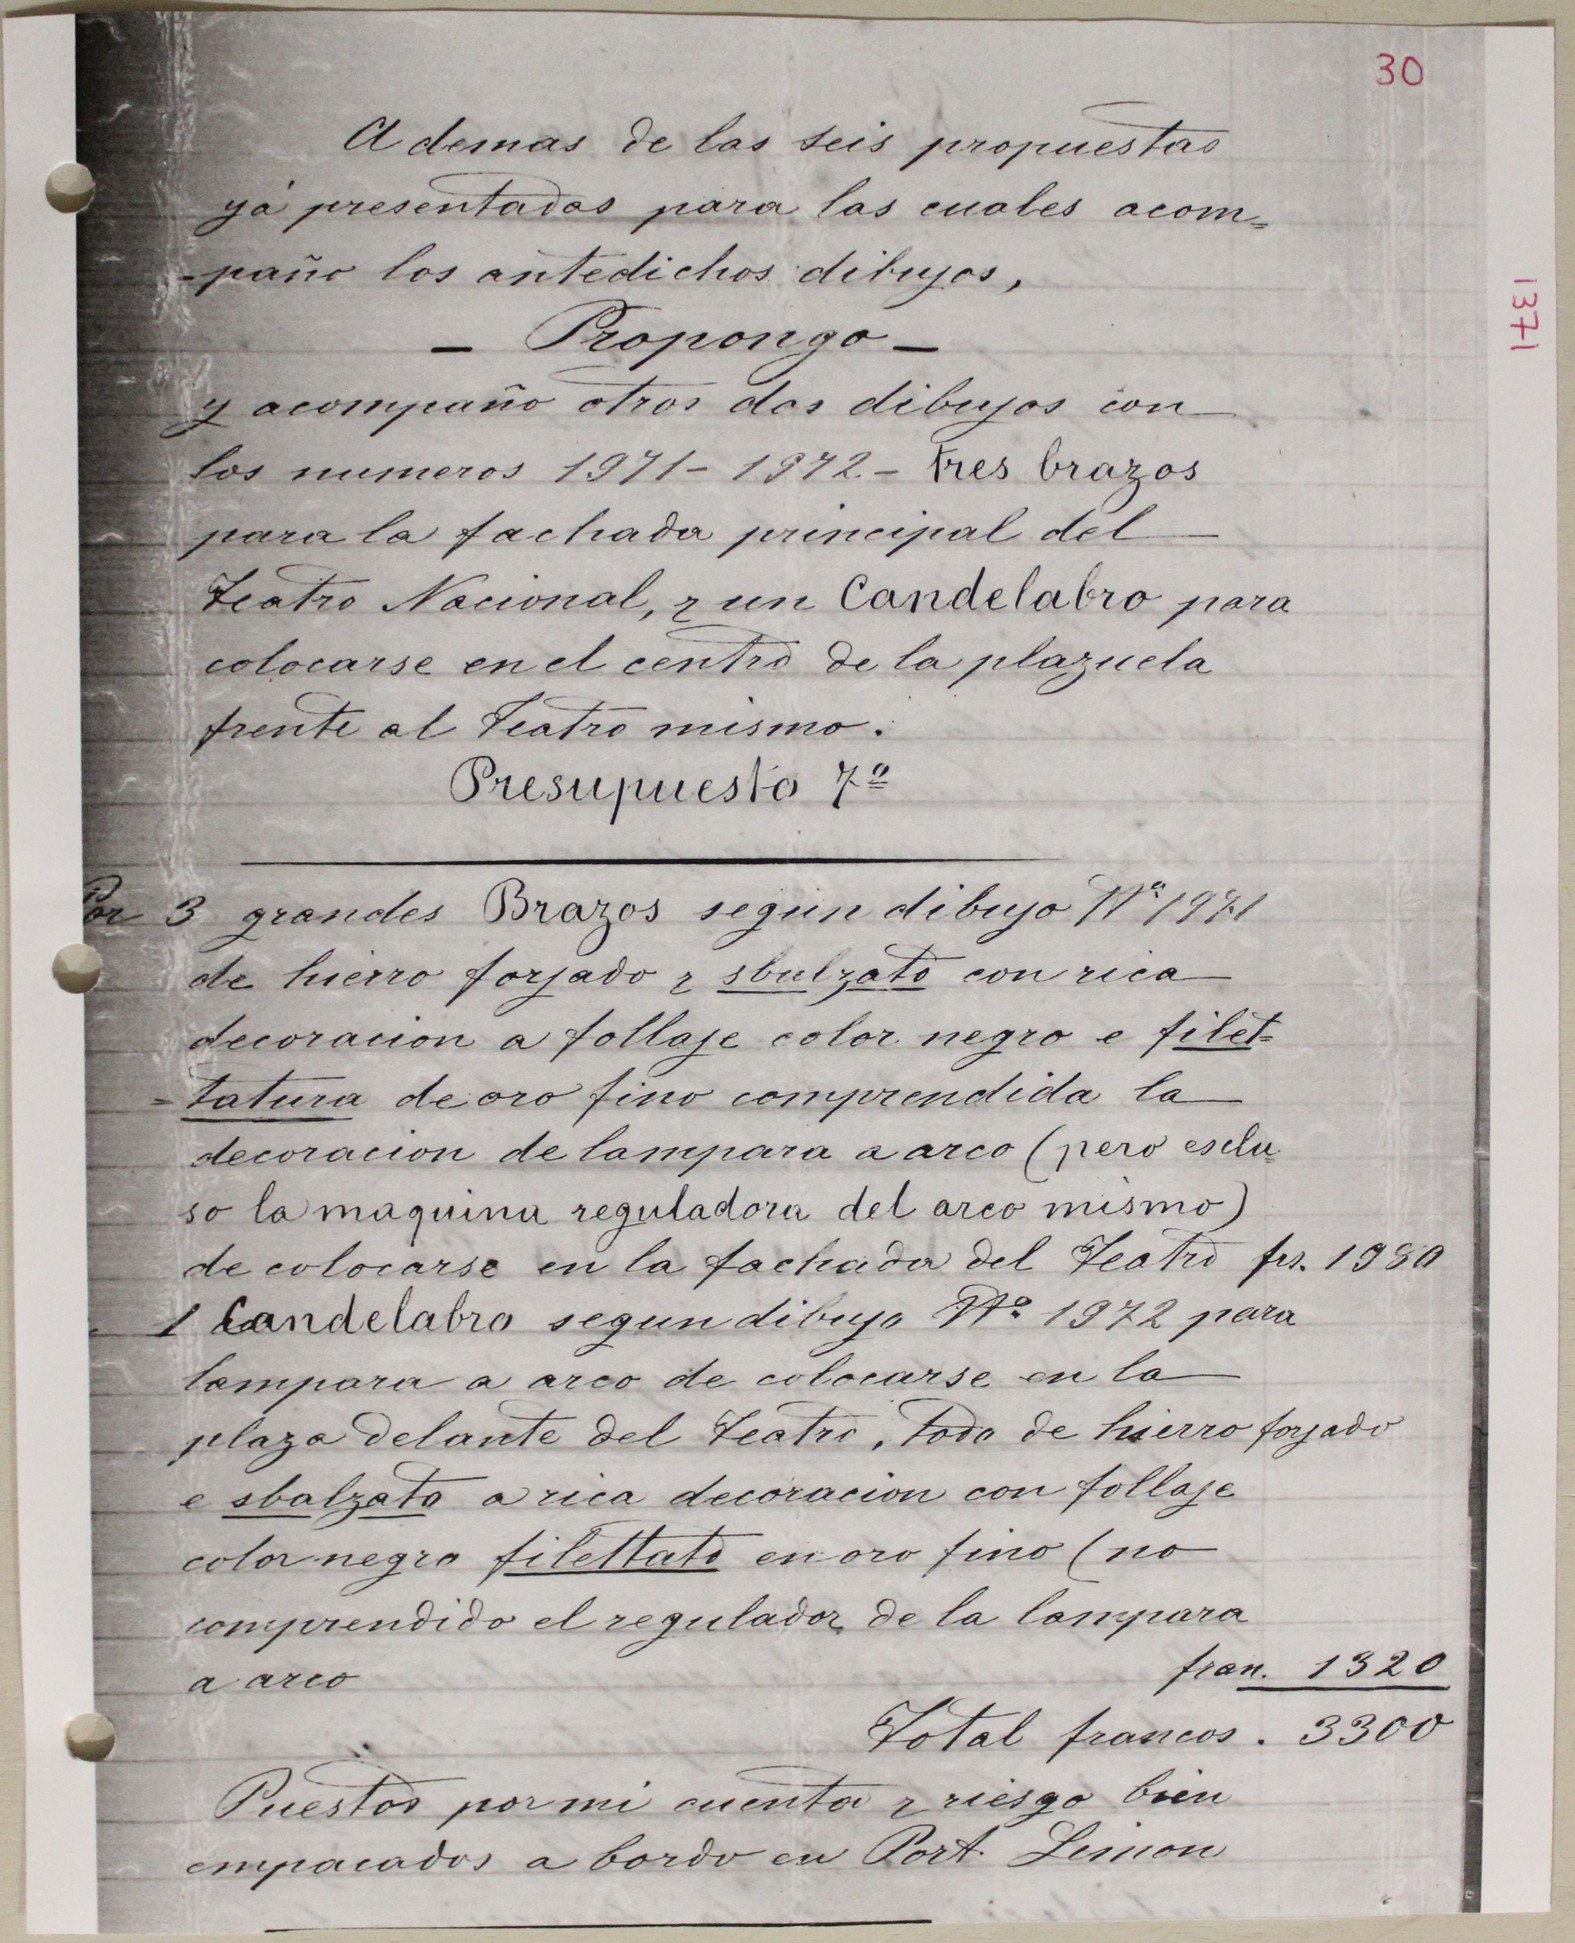 30
1371
Ademas de las seis propuestas
yá presentadas para las cuales acom=
-paño los antedichos dibujos,
- Propongo -
y acompaño otros dos dibujos con
los numeros 1971 - 1972 - tres brazos
para la fachada principal del
Teatro Nacional, y un Candelabro para
colocarse en el centro de la plazuela
frente al Teatro mismo.
Presupuesto 7º
Por 3 grandes Brazos segun dibujo Nº 1971
de hierro forjado y sbalzato con rica
decoracion a follaje color negro e filet=
=tatura de oro fino comprendida la
decoracion de lampara a arco (pero esclu=
so la maquina reguladora del arco mismo)
de colocarse en la fachada del Teatro frs. 1980
1 Candelabro segun dibujo Nº 1972 para
lampara a arco de colocarse en la
plaza delante del Teatro, todo de hierro forjado
e sbalzato a rica decoracion con follaje
color negro filettato en oro fino (no
comprendido el regulador de la lampara
a arco fran. 1320
Total francos . 3300
Puestos por mi cuenta y riesgo bien
empacados a bordo en Port. Limon